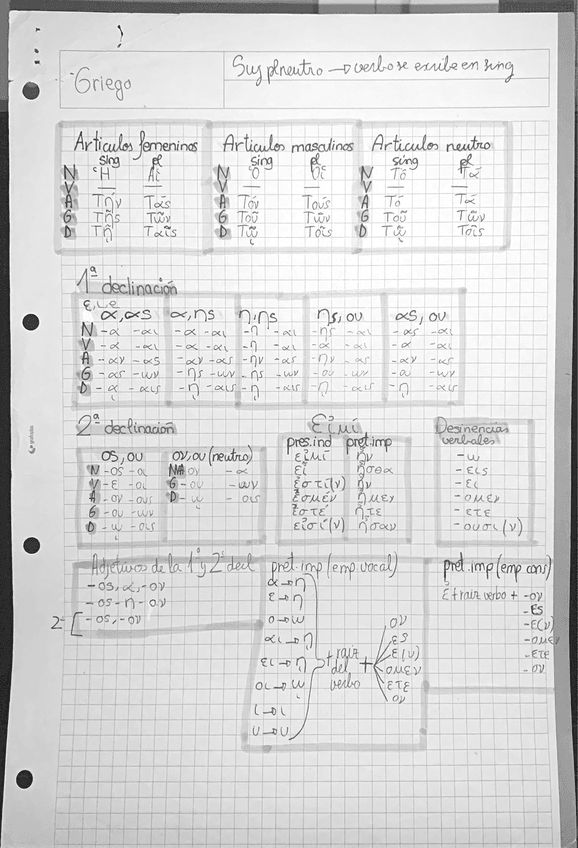 Griego
Suj pl neutro → verbo se escribe en sing
Artículos femeninos
sing pl
N Ἡ Αἱ
V — —
A Τήν Τάς
G Τῆς Τῶν
D Τῇ Ταῖς
Artículos masculinos
sing pl
Ὁ Οἱ
— —
Τόν Τούς
Τοῦ Τῶν
Τῷ Τοῖς
Artículos neutro
sing pl
N Τό Τά
V — —
A Τό Τά
G Τοῦ Τῶν
D Τῷ Τοῖς
1ª declinación
ε,ι,ρ
α, ας α, ης η, ης ης, ου ας, ου
N -α -αι -α -αι -η -αι -ης -αι -ας -αι
V -α -αι -α -αι -η -αι -α -αι -α -αι
A -αν -ας -αν -ας -ην -ας -ην -ας -αν -ας
G -ας -ων -ης -ων -ης -ων -ου -ων -ου -ων
D -ᾳ -αις -ῃ -αις -ῃ -αις -ῃ -αις -ῃ -αις
2ª declinación
ος, ου
N -ος -οι
V -ε -οι
A -ον -ους
G -ου -ων
D -ῳ -οις
ον, ου (neutro)
NVA ον -α
G -ου -ων
D -ῳ -οις
Εἰμί
pres.ind pret.imp
εἰμί ἦν
εἶ ἦσθα
ἐστί(ν) ἦν
ἐσμέν ἦμεν
ἐστέ ἦτε
εἰσί(ν) ἦσαν
Desinencias
verbales
-ω
-εις
-ει
-ομεν
-ετε
-ουσι(ν)
Adjetivos de la 1ª y 2ª decl
-ος, α, -ον
-ος -η -ον
2- [-ος, -ον
pret.imp (emp.vocal)
α→η
ε→η
ο→ω
αι→ῃ
ει→ῃ
οι→ῳ
ι→ι
υ→υ
+ raíz
del
verbo
+
ον
ες
ε(ν)
ομεν
ετε
ον
pret.imp (emp cons)
ἐ+raíz verbo + -ον
-ες
-ε(ν)
-ομεν
-ετε
-ον